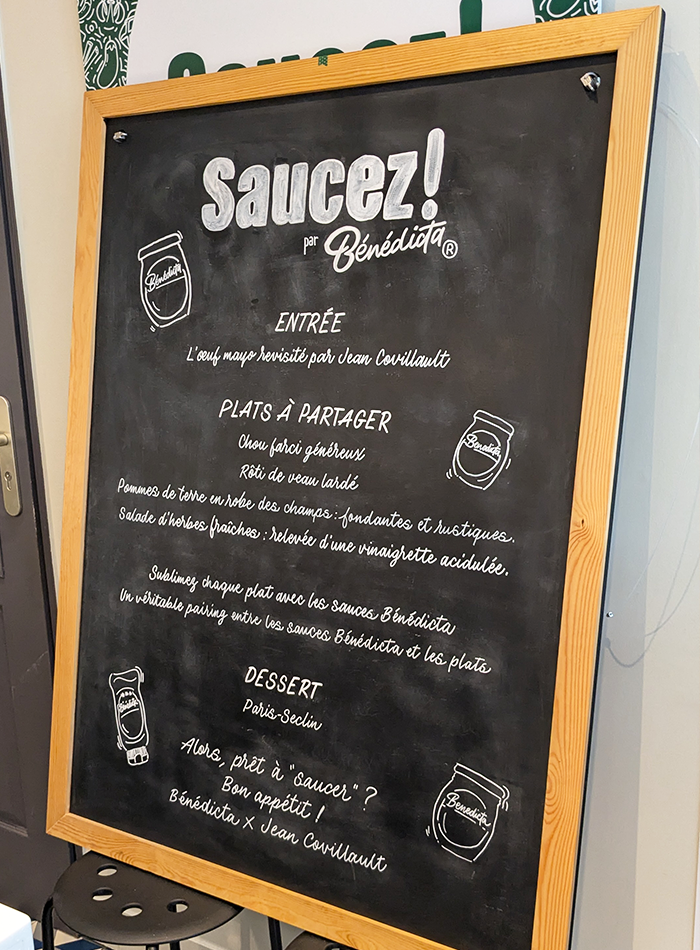 Saucez!
Saucez!
par Bénédicta®
Bénédicta
ENTRÉE
L'œuf mayo revisité par Jean Covillault
PLATS À PARTAGER
Chou farci généreux
Rôti de veau lardé
Bénédicta
Pommes de terre en robe des champs : fondantes et rustiques.
Salade d'herbes fraîches : relevée d'une vinaigrette acidulée.
Sublimez chaque plat avec les sauces Bénédicta
Un véritable pairing entre les sauces Bénédicta et les plats
DESSERT
Paris-Seclin
Bénédicta
Alors, prêt à "saucer" ?
Bon appétit !
Bénédicta X Jean Covillault
Bénédicta